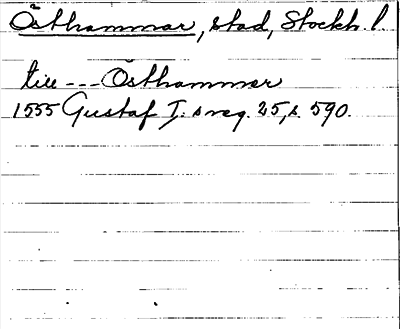 Östhammar, stad, Stockh. l.
till --- Östhammar
1555 Gustaf I:s reg. 25, s. 590.